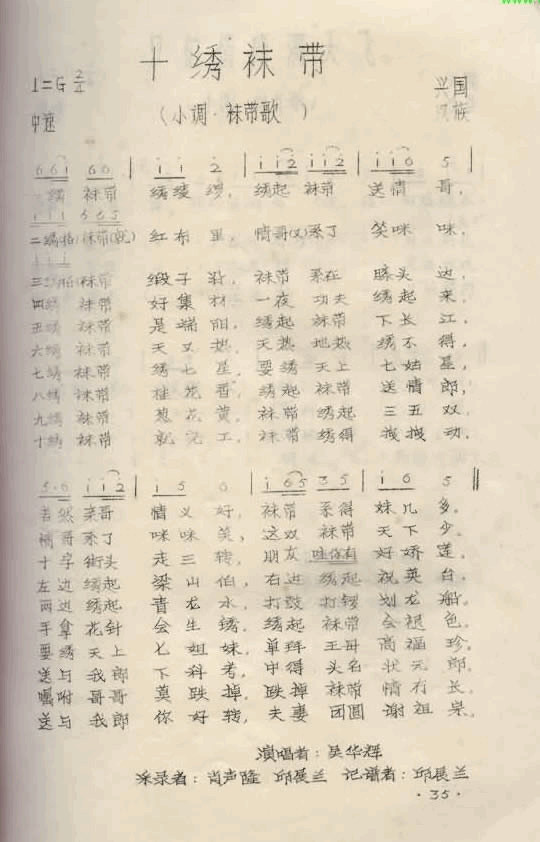 十绣袜带
1=G 2/4
兴国
中速
(小调·袜带歌)
汉族
6 6 i 6 0 i i 2 i i 2 i i 2 i i 6 5
一绣 袜带 绣绫 绫, 绣起 袜带 送情 哥,
i i i 6 6 5
二绣(格)袜带(就) 红布 里, 情哥(又)系了 笑咪 咪,
i i i
三绣(格)袜带 缎子 对, 袜带 系在 膝头 边,
四绣 袜带 好集 材 一夜 功夫 绣起 来,
五绣 袜带 是端 阳, 绣起 袜带 下长 江,
六绣 袜带 天又 热 天热 地热 绣不 得,
七绣 袜带 绣七 星 要绣 天上 七姑 星,
八绣 袜带 桂花 香 绣起 袜带 送情 郎,
九绣 袜带 葱花 黄, 袜带 绣起 三五 双,
十绣 袜带 就完 工, 袜带 绣得 拨拨 动,
i i 2 i 5 6 i 6 5 3 5 i 6 5
吉然 亲哥 情义 好, 袜带 系得 妹儿 多。
情哥 系了 咪咪 笑, 这双 袜带 天下 少。
十字 街头 走三 转, 朋友 哇你有 好娇 莲,
左边 绣起 梁山 伯, 右边 绣起 祝英 台,
两边 绣起 青龙 水, 打鼓 打锣 划龙 船。
手拿 花针 会生 锈, 绣起 袜带 会褪 色。
要绣 天上 七姐 妹, 单绊 王哥 高福 珍,
送与 我郎 下科 考, 中得 头名 状元 郎,
嘱咐 哥哥 莫跌 掉, 跌掉 袜带 情冇 长,
送与 我郎 你好 转, 夫妻 团圆 谢祖 宗,
演唱者:吴华辉
采录者:肖声隆 邱展兰 记谱者:邱展兰
·35·